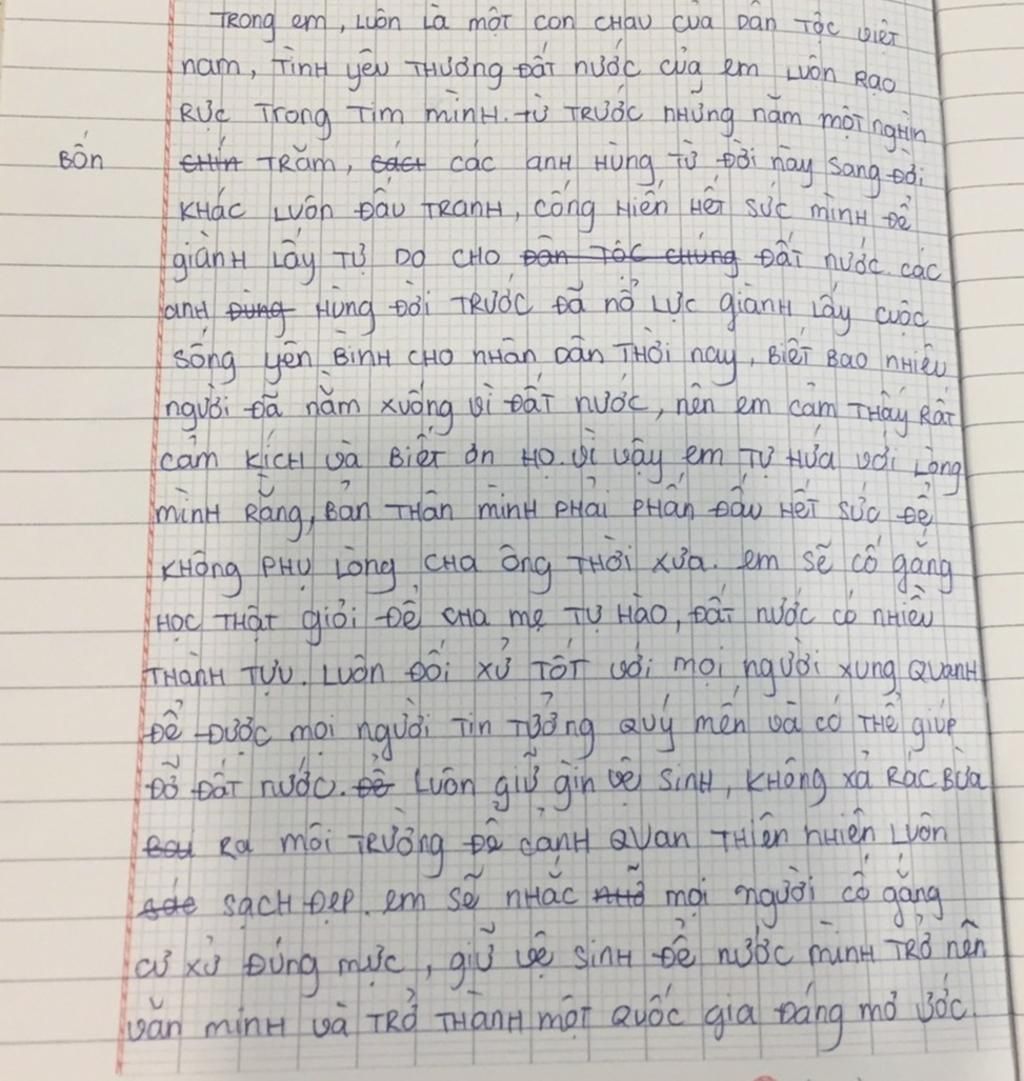 Trong em, luôn là một con cháu của dân tộc việt
nam, Tình yêu Thương đất nước của em luôn Rạo
Rực Trong Tim mình. từ Trước những năm một nghìn
Bốn chín Trăm, các các anh Hùng từ đời này sang đời
khác luôn đấu Tranh, cống Hiến Hết sức mình để
giành lấy Tự Do cho dân Tộc chúng đất nước. các
anh Hùng đời Trước đã nổ lực giành lấy cuộc
sống yên Bình cho nhân dân Thời nay, Biết Bao nhiêu
người đã nằm xuống vì đất nước, nên em cảm Thấy Rất
cảm kích và Biết ơn Họ. vì vậy em Tự Hứa với lòng
mình Rằng, Bản Thân mình phải phấn đấu Hết sức để
không phụ lòng cha ông Thời xưa. em sẽ cố gắng
Học Thật giỏi để cha mẹ Tự Hào, đất nước có nhiều
Thành Tựu. luôn đối xử Tốt với mọi người xung quanh
để được mọi người Tin Tưởng quý mến và có Thể giúp
đỡ đất nước. để luôn giữ gìn vệ sinh, không xả Rác Bừa
Ra môi Trường để cảnh quan Thiên nhiên luôn
sạch đẹp. em sẽ nhắc mọi người cố gắng
cư xử đúng mực, giữ vệ sinh để nước mình Trở nên
văn minh và Trở Thành một quốc gia đáng mơ ước.